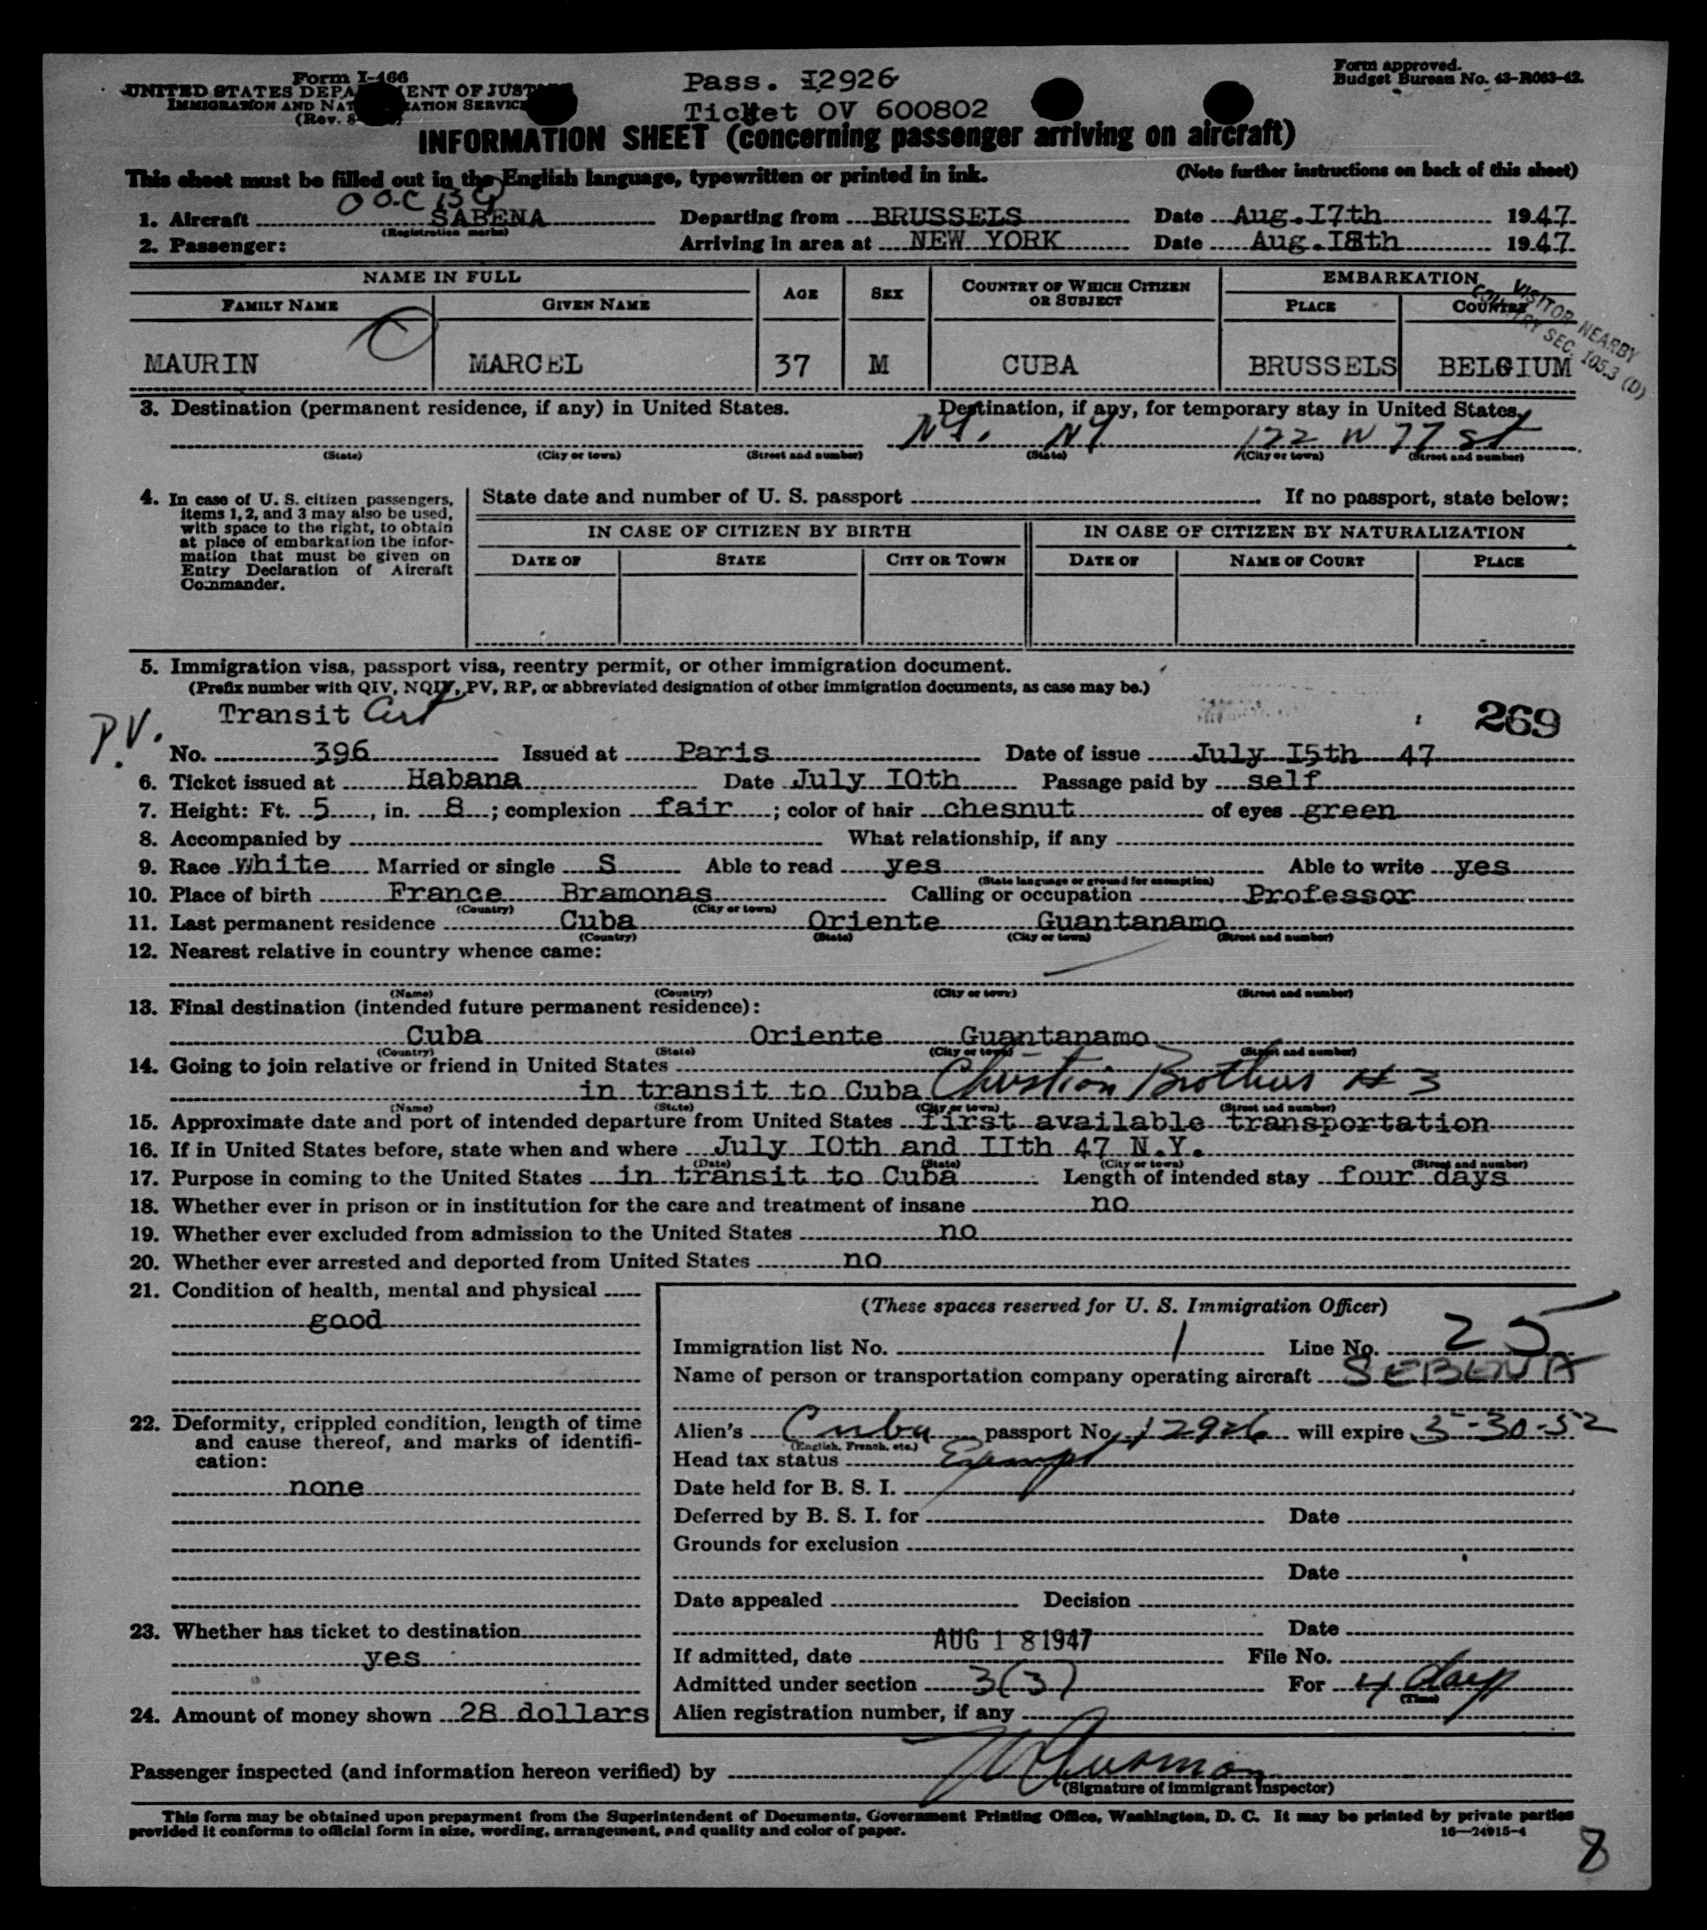 Form I-466
UNITED STATES DEPA ENT OF JUST
IMMIGRATION AND NAT ATION SERVICE
(Rev. 8
Pass. I2926
Ticket OV 600802
Form approved.
Budget Bureau No. 43-R063-42.
INFORMATION SHEET (concerning passenger arriving on aircraft)
This sheet must be filled out in the English language, typewritten or printed in ink. (Note further instructions on back of this sheet)
OO.CBG
1. Aircraft SABENA Departing from BRUSSELS Date Aug.I7th 1947
(Registration marks)
2. Passenger: Arriving in area at NEW YORK Date Aug.I8th 1947
NAME IN FULL AGE SEX COUNTRY OF WHICH CITIZEN OR SUBJECT EMBARKATION
FAMILY NAME GIVEN NAME PLACE COUNTRY
VISITOR NEARBY
COUNTRY SEC. 105.3 (D)
MAURIN MARCEL 37 M CUBA BRUSSELS BELGIUM
3. Destination (permanent residence, if any) in United States. Destination, if any, for temporary stay in United States.
NY. NY 122 W 77 St
(State) (City or town) (Street and number) (State) (City or town) (Street and number)
4. In case of U. S. citizen passengers,
items 1, 2, and 3 may also be used,
with space to the right, to obtain
at place of embarkation the infor-
mation that must be given on
Entry Declaration of Aircraft
Commander.
State date and number of U. S. passport If no passport, state below:
IN CASE OF CITIZEN BY BIRTH IN CASE OF CITIZEN BY NATURALIZATION
DATE OF STATE CITY OR TOWN DATE OF NAME OF COURT PLACE
5. Immigration visa, passport visa, reentry permit, or other immigration document.
(Prefix number with QIV, NQIV, PV, RP, or abbreviated designation of other immigration documents, as case may be.)
P.V. Transit Cert 269
No. 396 Issued at Paris Date of issue July I5th 47
6. Ticket issued at Habana Date July IOth Passage paid by self
7. Height: Ft. 5, in. 8; complexion fair; color of hair chesnut of eyes green
8. Accompanied by What relationship, if any
9. Race white Married or single S Able to read yes Able to write yes
(State language or ground for exemption)
10. Place of birth France Bramonas Calling or occupation Professor
(Country) (City or town)
11. Last permanent residence Cuba Oriente Guantanamo
(Country) (State) (City or town) (Street and number)
12. Nearest relative in country whence came:
(Name) (Country) (City or town) (Street and number)
13. Final destination (intended future permanent residence):
Cuba Oriente Guantanamo
(Country) (State) (City or town) (Street and number)
14. Going to join relative or friend in United States
in transit to Cuba Christian Brothers # 3
(Name) (State) (City or town) (Street and number)
15. Approximate date and port of intended departure from United States first available transportation
16. If in United States before, state when and where July IOth and IIth 47 N.Y.
(Date) (State) (City or town) (Street and number)
17. Purpose in coming to the United States in transit to Cuba Length of intended stay four days
18. Whether ever in prison or in institution for the care and treatment of insane no
19. Whether ever excluded from admission to the United States no
20. Whether ever arrested and deported from United States no
21. Condition of health, mental and physical
good
22. Deformity, crippled condition, length of time
and cause thereof, and marks of identifi-
cation:
none
23. Whether has ticket to destination
yes
24. Amount of money shown 28 dollars
(These spaces reserved for U. S. Immigration Officer)
Immigration list No. 1 Line No. 25
Name of person or transportation company operating aircraft SEBENA
Alien's Cuba passport No. 12926 will expire 5-30-52
(English, French, etc.)
Head tax status Exempt
Date held for B. S. I.
Deferred by B. S. I. for Date
Grounds for exclusion
Date
Date appealed Decision
Date
If admitted, date AUG 18 1947 File No.
Admitted under section 3(3) For 4 days
(Time)
Alien registration number, if any
Passenger inspected (and information hereon verified) by
(Signature of immigrant inspector)
This form may be obtained upon prepayment from the Superintendent of Documents, Government Printing Office, Washington, D. C. It may be printed by private parties
provided it conforms to official form in size, wording, arrangement, and quality and color of paper. 16—24915-4
8